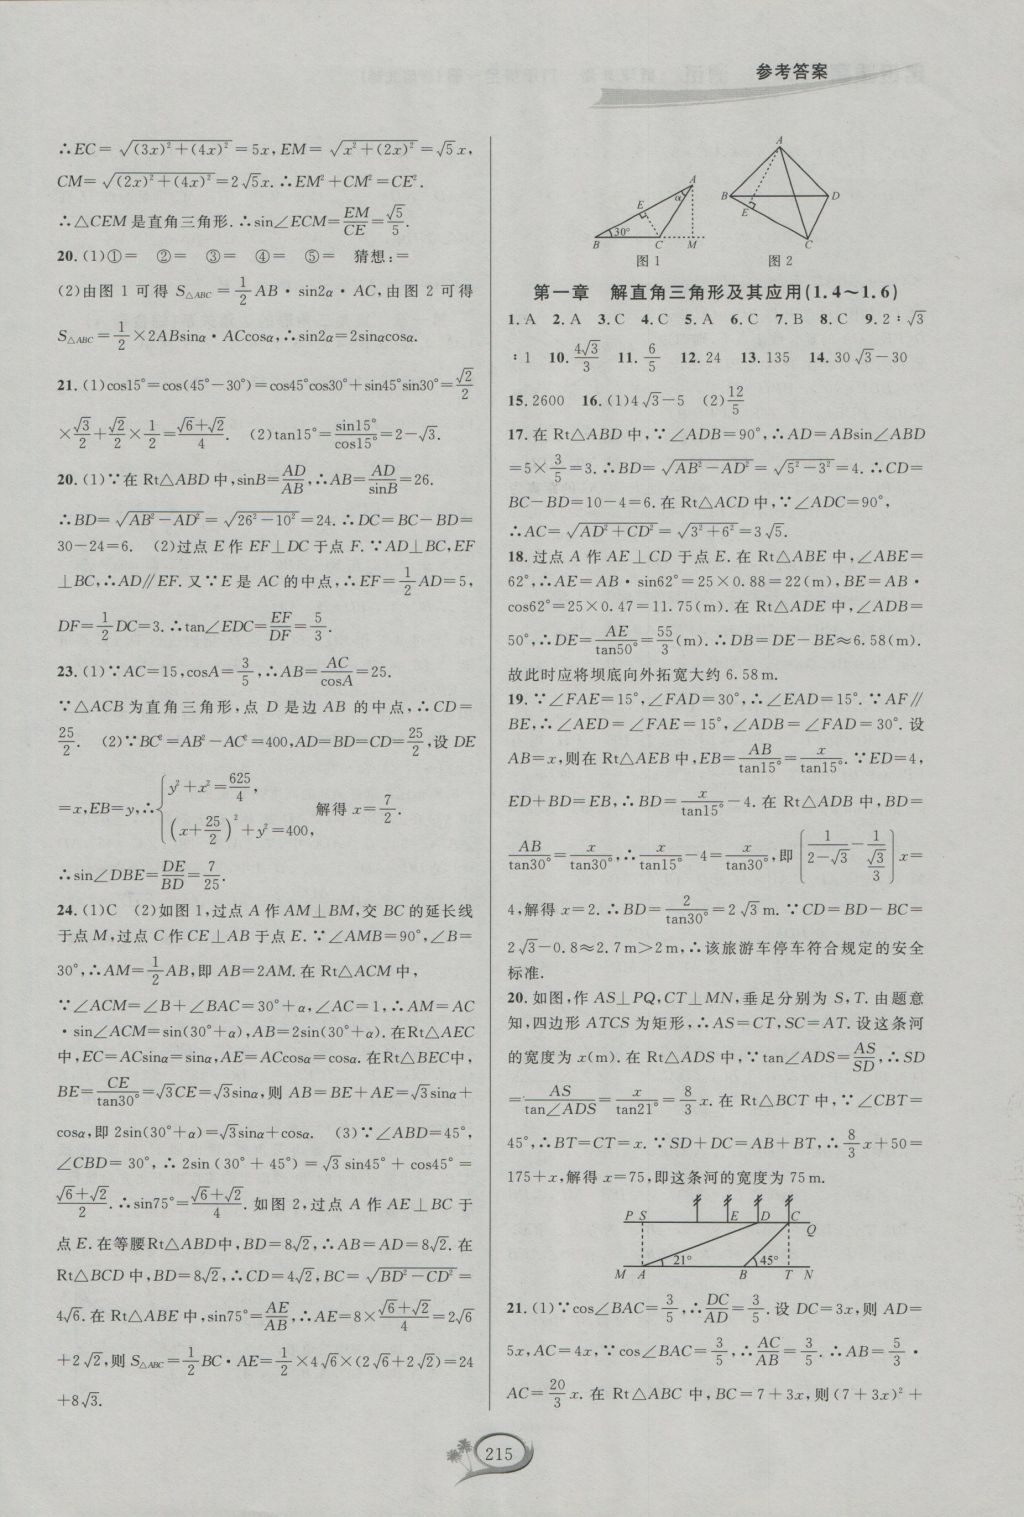 参考答案
∴EC=√((3x)²+(4x)²)=5x,EM=√(x²+(2x)²)=√5x,
CM=√((2x)²+(4x)²)=2√5x.∴EM²+CM²=CE².
∴△CEM是直角三角形.∴sin∠ECM=EM/CE=√5/5.
20.(1)①= ②= ③= ④= ⑤= 猜想:=
(2)由图1可得S△ABC=1/2AB·sin2α·AC,由图2可得
S△ABC=1/2×2ABsinα·ACcosα,∴sin2α=2sinαcosα.
21.(1)cos15°=cos(45°-30°)=cos45°cos30°+sin45°sin30°=√2/2
×√3/2+√2/2×1/2=(√6+√2)/4. (2)tan15°=sin15°/cos15°=2-√3.
20.(1)∵在Rt△ABD中,sinB=AD/AB,∴AB=AD/sinB=26.
∴BD=√(AB²-AD²)=√(26²-10²)=24.∴DC=BC-BD=
30-24=6. (2)过点E作EF⊥DC于点F.∵AD⊥BC,EF
⊥BC,∴AD∥EF.又∵E是AC的中点,∴EF=1/2AD=5,
DF=1/2DC=3.∴tan∠EDC=EF/DF=5/3.
23.(1)∵AC=15,cosA=3/5,∴AB=AC/cosA=25.
∵△ACB为直角三角形,点D是边AB的中点,∴CD=
25/2. (2)∵BC²=AB²-AC²=400,AD=BD=CD=25/2,设DE
=x,EB=y,∴{y²+x²=625/4, (x+25/2)²+y²=400, 解得x=7/2.
∴sin∠DBE=DE/BD=7/25.
24.(1)C (2)如图1,过点A作AM⊥BM,交BC的延长线
于点M,过点C作CE⊥AB于点E.∵∠AMB=90°,∠B=
30°,∴AM=1/2AB,即AB=2AM.在Rt△ACM中,
∵∠ACM=∠B+∠BAC=30°+α,∠AC=1,∴AM=AC
·sin∠ACM=sin(30°+α),AB=2sin(30°+α).在Rt△AEC
中,EC=ACsinα=sinα,AE=ACcosα=cosα.在Rt△BEC中,
BE=CE/tan30°=√3CE=√3sinα,则AB=BE+AE=√3sinα+
cosα,即2sin(30°+α)=√3sinα+cosα. (3)∵∠ABD=45°,
∠CBD=30°,∴2sin(30°+45°)=√3sin45°+cos45°=
(√6+√2)/2.∴sin75°=(√6+√2)/4.如图2,过点A作AE⊥BC于
点E.在等腰Rt△ABD中,BD=8√2,∴AB=AD=8√2.在
Rt△BCD中,BD=8√2,∴CD=4√2,BC=√(BD²-CD²)=
4√6.在Rt△ABE中,sin75°=AE/AB,∴AE=8×(√6+√2)/4=2√6
+2√2,则S△ABC=1/2BC·AE=1/2×4√6×(2√6+2√2)=24
+8√3.
A
E
α
B
30°
C
M
图1
A
B
D
E
C
图2
第一章 解直角三角形及其应用(1.4～1.6)
1.A 2.A 3.C 4.C 5.A 6.C 7.B 8.C 9.2∶√3
∶1 10.4√3/3 11.6/5 12.24 13.135 14.30√3-30
15.2600 16.(1)4√3-5 (2)12/5
17.在Rt△ABD中,∵∠ADB=90°,∴AD=ABsin∠ABD
=5×3/5=3.∴BD=√(AB²-AD²)=√(5²-3²)=4.∴CD=
BC-BD=10-4=6.在Rt△ACD中,∵∠ADC=90°,
∴AC=√(AD²+CD²)=√(3²+6²)=3√5.
18.过点A作AE⊥CD于点E.在Rt△ABE中,∠ABE=
62°,∴AE=AB·sin62°=25×0.88=22(m),BE=AB·
cos62°=25×0.47=11.75(m).在Rt△ADE中,∠ADB=
50°,∴DE=AE/tan50°=55/3(m).∴DB=DE-BE≈6.58(m).
故此时应将坝底向外拓宽大约6.58m.
19.∵∠FAE=15°,∠FAD=30°,∴∠EAD=15°.∵AF∥
BE,∴∠AED=∠FAE=15°,∠ADB=∠FAD=30°.设
AB=x,则在Rt△AEB中,EB=AB/tan15°=x/tan15°.∵ED=4,
ED+BD=EB,∴BD=x/tan15°-4.在Rt△ADB中,BD=
AB/tan30°=x/tan30°,∴x/tan15°-4=x/tan30°,即(1/(2-√3)-1/(√3/3))x=
4,解得x=2.∴BD=2/tan30°=2√3m.∵CD=BD-BC=
2√3-0.8≈2.7m>2m,∴该旅游车停车符合规定的安全
标准.
20.如图,作AS⊥PQ,CT⊥MN,垂足分别为S,T.由题意
知,四边形ATCS为矩形,∴AS=CT,SC=AT.设这条河
的宽度为x(m).在Rt△ADS中,∵tan∠ADS=AS/SD,∴SD
=AS/tan∠ADS=x/tan21°=8/3x.在Rt△BCT中,∵∠CBT=
45°,∴BT=CT=x.∵SD+DC=AB+BT,∴8/3x+50=
175+x,解得x=75,即这条河的宽度为75m.
P S E D C Q
21° 45°
M A B T N
21.(1)∵cos∠BAC=3/5,∴DC/AD=3/5.设DC=3x,则AD=
5x,AC=4x,∵cos∠BAC=3/5,∴AC/AB=3/5.∴AB=5/3·
AC=20/3x.在Rt△ABC中,BC=7+3x,则(7+3x)²+
215